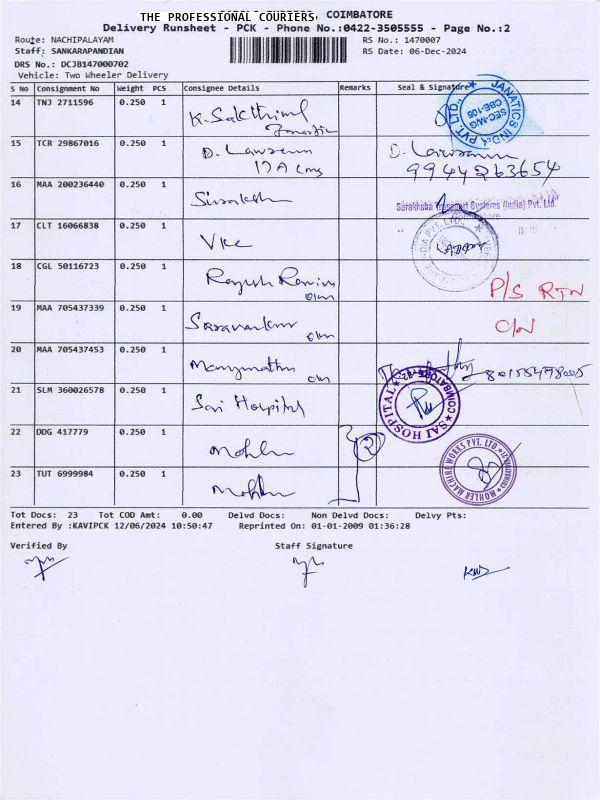 THE PROFESSIONAL COURIERS, COIMBATORE
Delivery Runsheet - PCK - Phone No.:0422-3505555 - Page No.:2
Route: NACHIPALAYAM RS No.: 1470007
Staff: SANKARAPANDIAN RS Date: 06-Dec-2024
DRS No.: DCJB147000702
Vehicle: Two Wheeler Delivery
S No Consignment No Weight PCS Consignee Details Remarks Seal & Signature
14 TNJ 2711596 0.250 1 K. Sakthivel
JANATICS INDIA PVT. LTD. CBE-105
15 TCR 29867016 0.250 1 D. Lawrance D. Lawrance
9944263654
16 MAA 200236440 0.250 1
Surakhsha Transport Systems (India) Pvt. Ltd.
17 CLT 16066838 0.250 1 VKC
INDIA PVT. LTD.
18 CGL 50116723 0.250 1 P/S RTN
19 MAA 705437339 0.250 1 C/N
20 MAA 705437453 0.250 1
21 SLM 360026578 0.250 1 Sai Hospital
SAI HOSPITAL COIMBATORE
22 DDG 417779 0.250 1 Mohler 2
23 TUT 6999984 0.250 1 Mohler
MOHLER MACHINE WORKS PVT. LTD.
Tot Docs: 23 Tot COD Amt: 0.00 Delvd Docs: Non Delvd Docs: Delvy Pts:
Entered By :KAVIPCK 12/06/2024 10:50:47 Reprinted On: 01-01-2009 01:36:28
Verified By Staff Signature